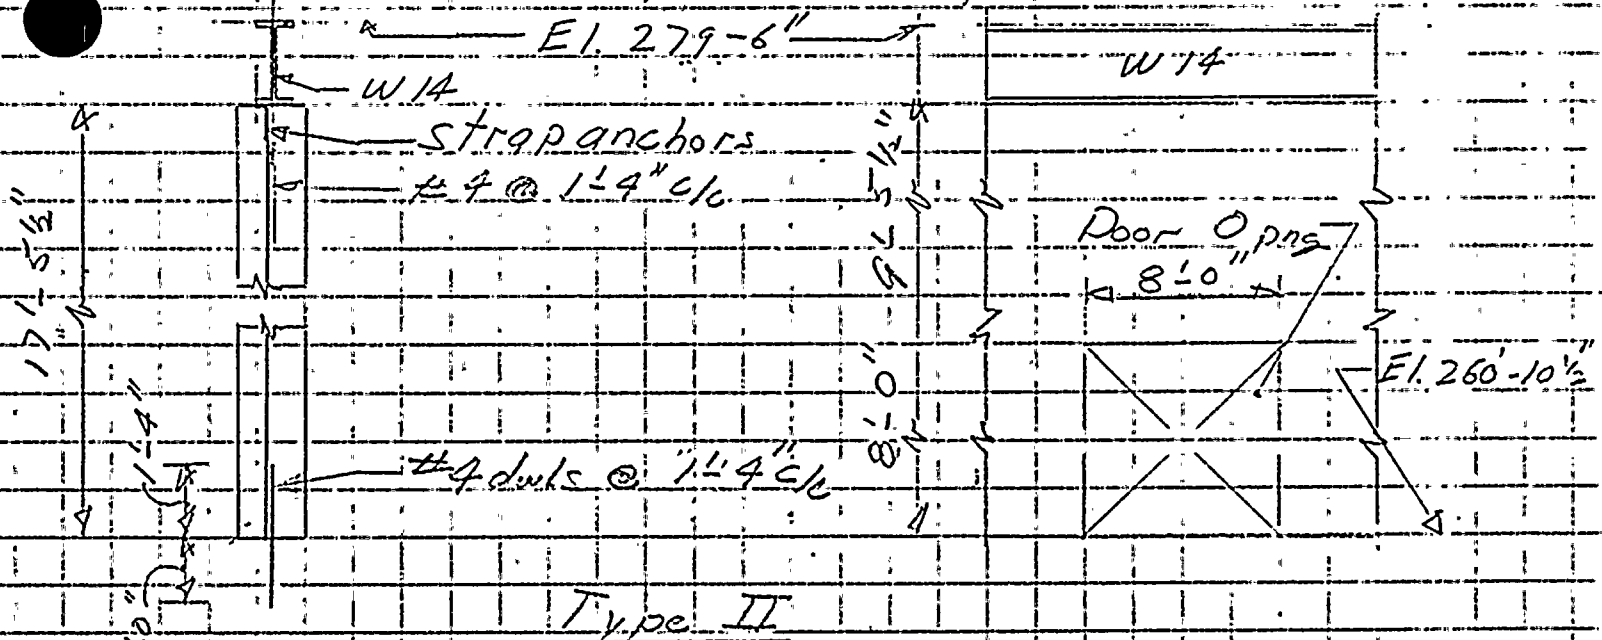 El. 279-6"
W 14
W 14
strap anchors
#4 @ 1'-4" c/c
17'-5½"
9'-5½"
Door Opng
8'-0"
El. 260'-10½"
8'-0"
1'-4"
#4 dwls @ 1'-4" c/c
0"
Type II